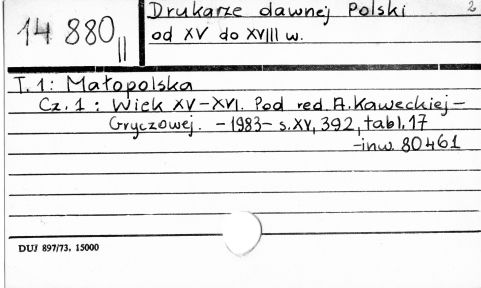 14 880 II
Drukarze dawnej Polski 2
od XV do XVIII w.
T. 1: Małopolska
Cz. 1: Wiek XV-XVI. Pod red. A. Kaweckiej-
Gryczowej. - 1983 - s. XV, 392, tabl. 17
- inw. 80461
DUJ 897/73, 15000